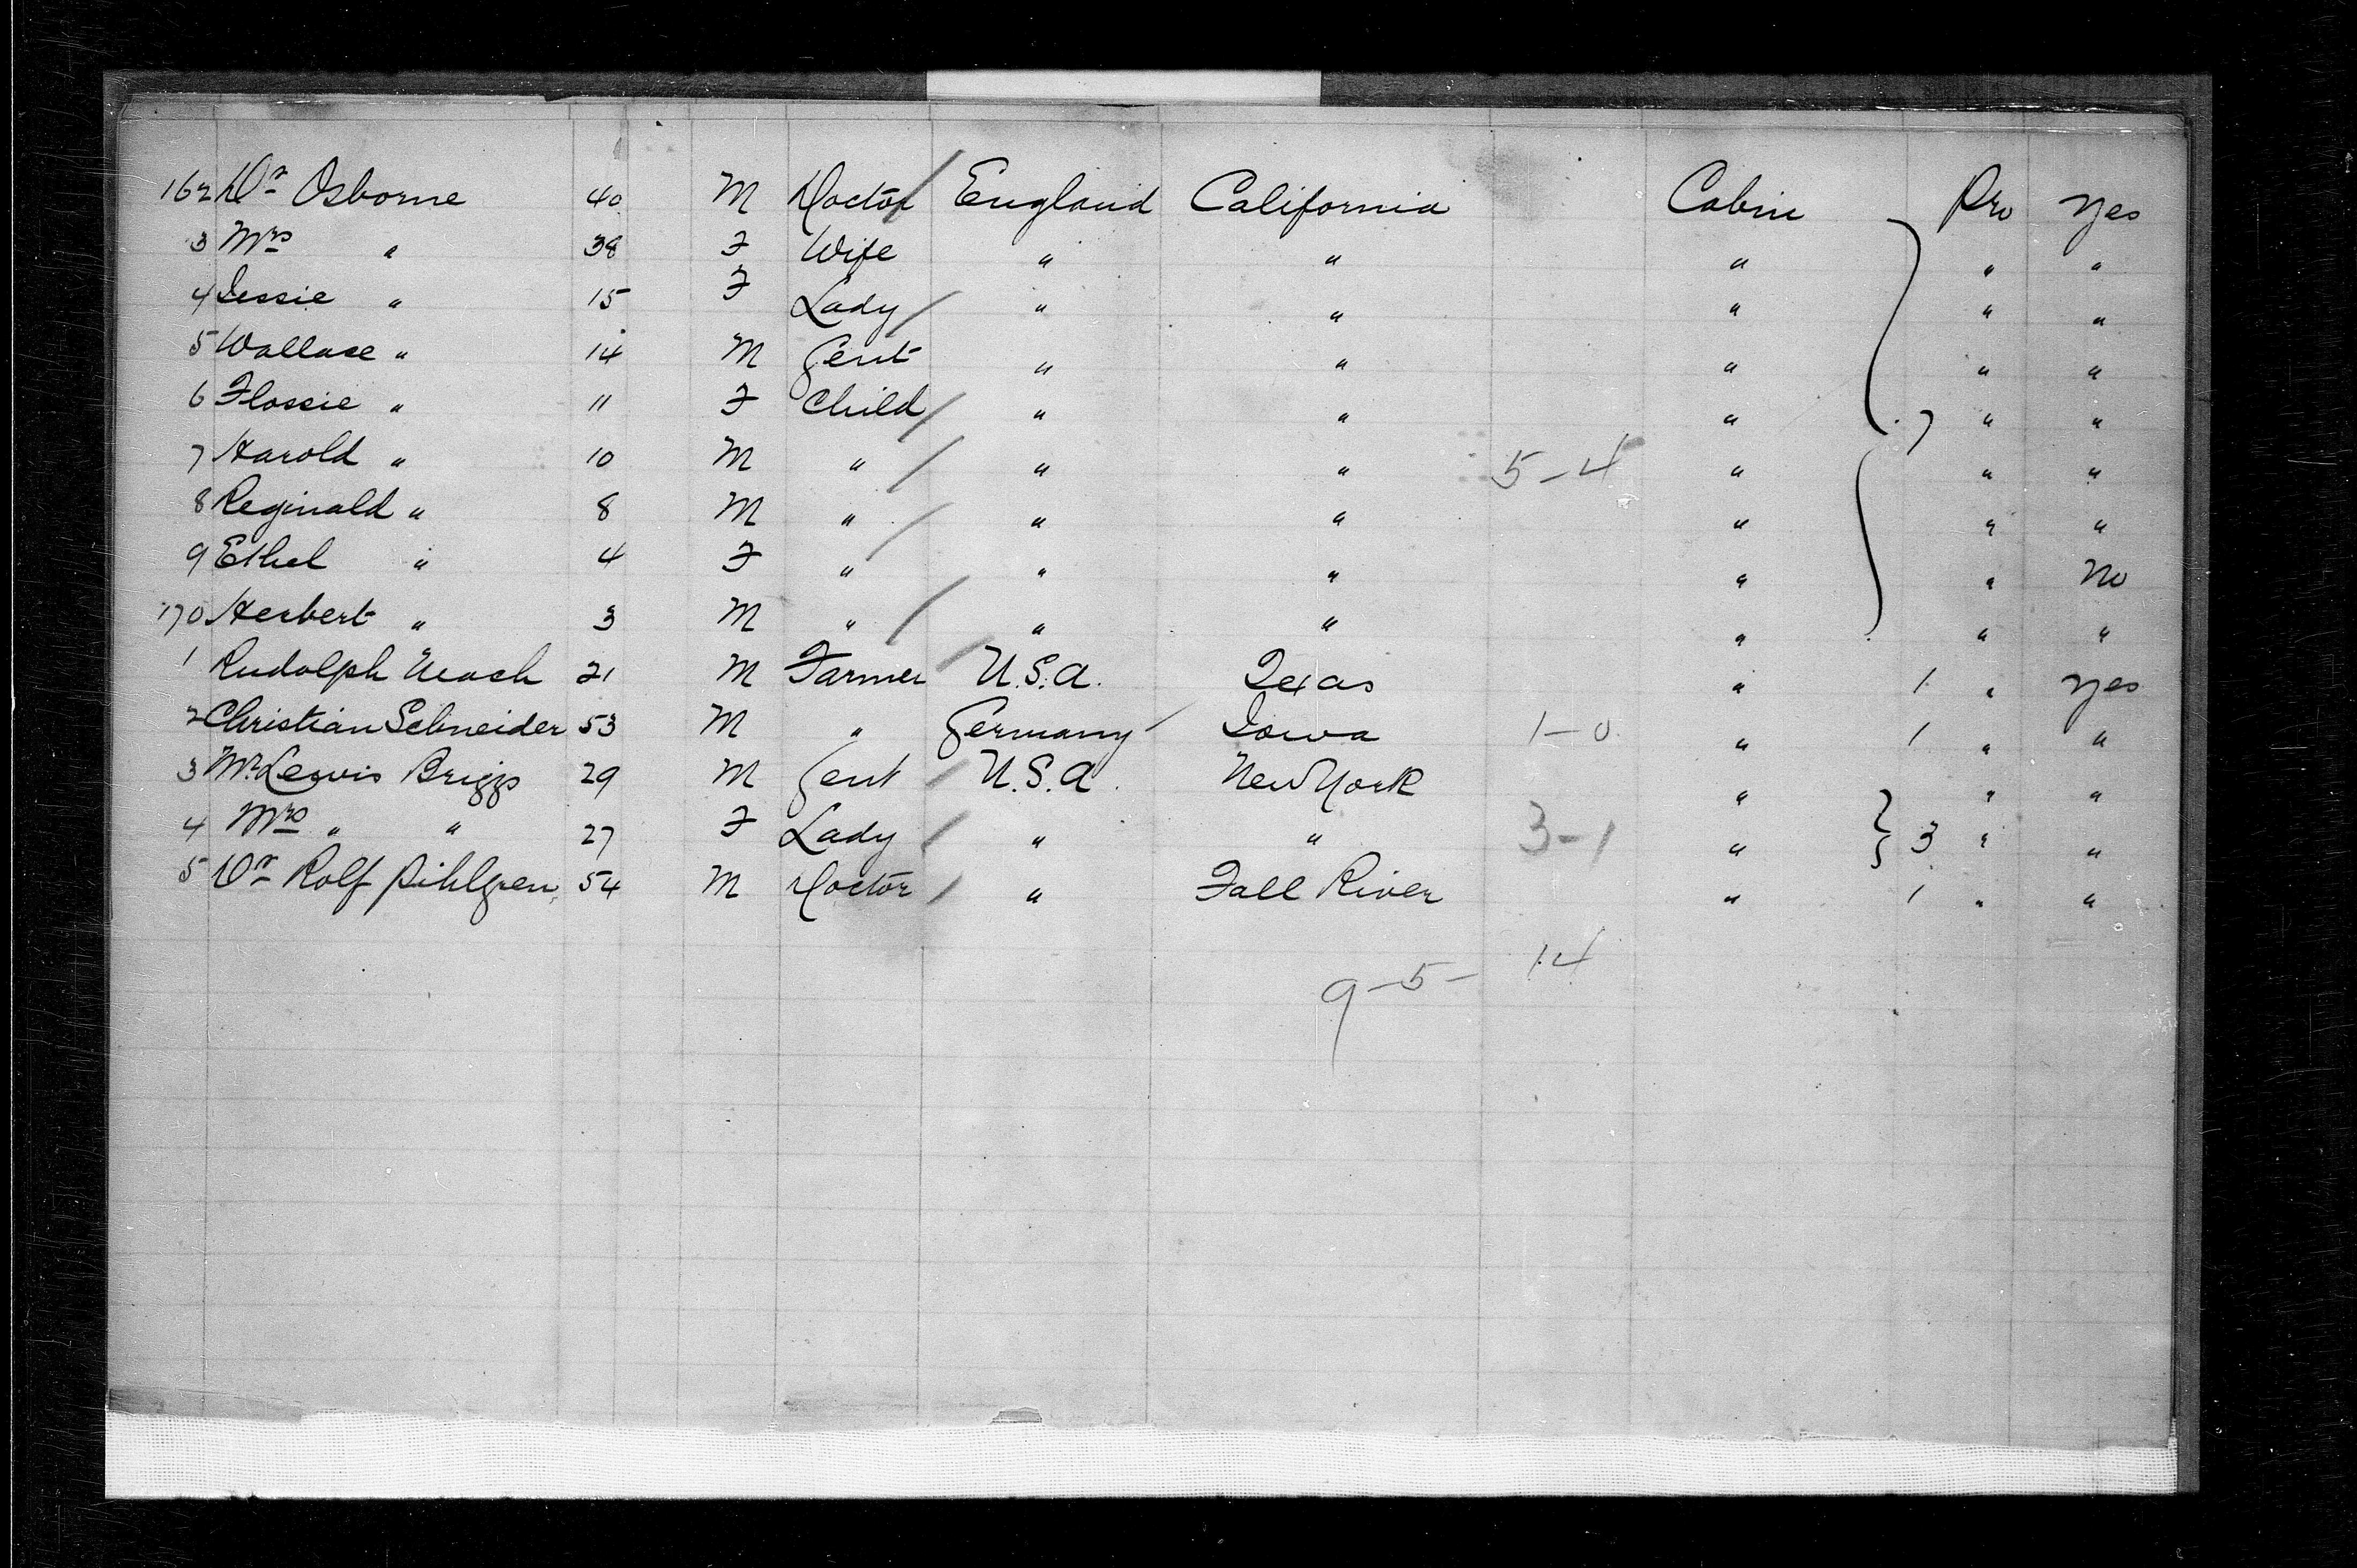 162 Dr Osborne 40 M Doctor England California Cabin Pro yes
3 Mrs " 38 F Wife " " " " "
4 Jessie " 15 F Lady " " " " "
5 Wallace " 14 M Gent " " " " "
6 Flossie " 11 F Child " " " 7 " "
7 Harold " 10 M " " " 5-4 " " "
8 Reginald " 8 M " " " " " "
9 Ethel " 4 F " " " " " no
170 Herbert " 3 M " " " " " "
1 Rudolph 21 M Farmer U.S.A. Texas " 1 " yes
2 Christian Schneider 53 M " Germany Iowa 1-0 " 1 " "
3 Mr Lewis Briggs 29 M Gent U.S.A. New York " " "
4 Mrs " " 27 F Lady " " 3-1 " 3 " "
5 Dr Rolf Pihlgren 54 M Doctor " Fall River " 1 " "
9-5- 14